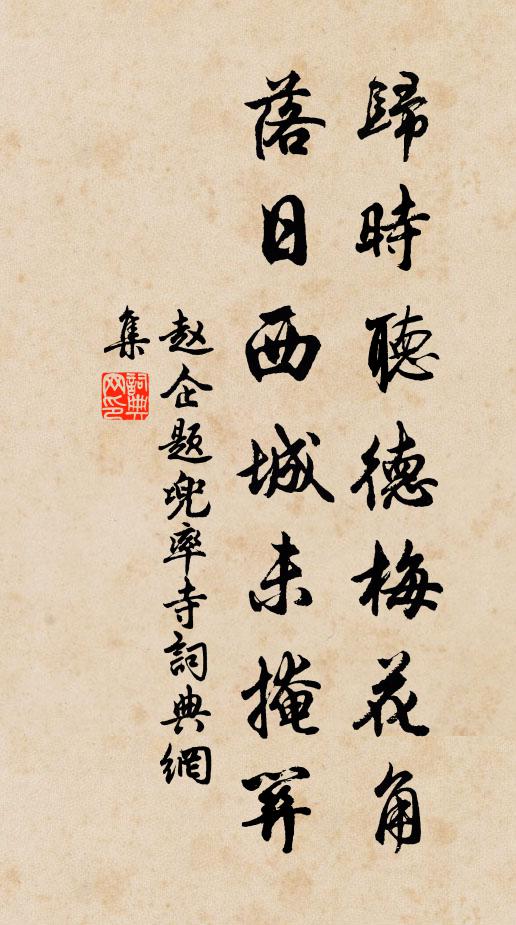 歸時聽德梅花角
落日西城未掩關
赵企题兜率寺詞典網
集
詞典
网印